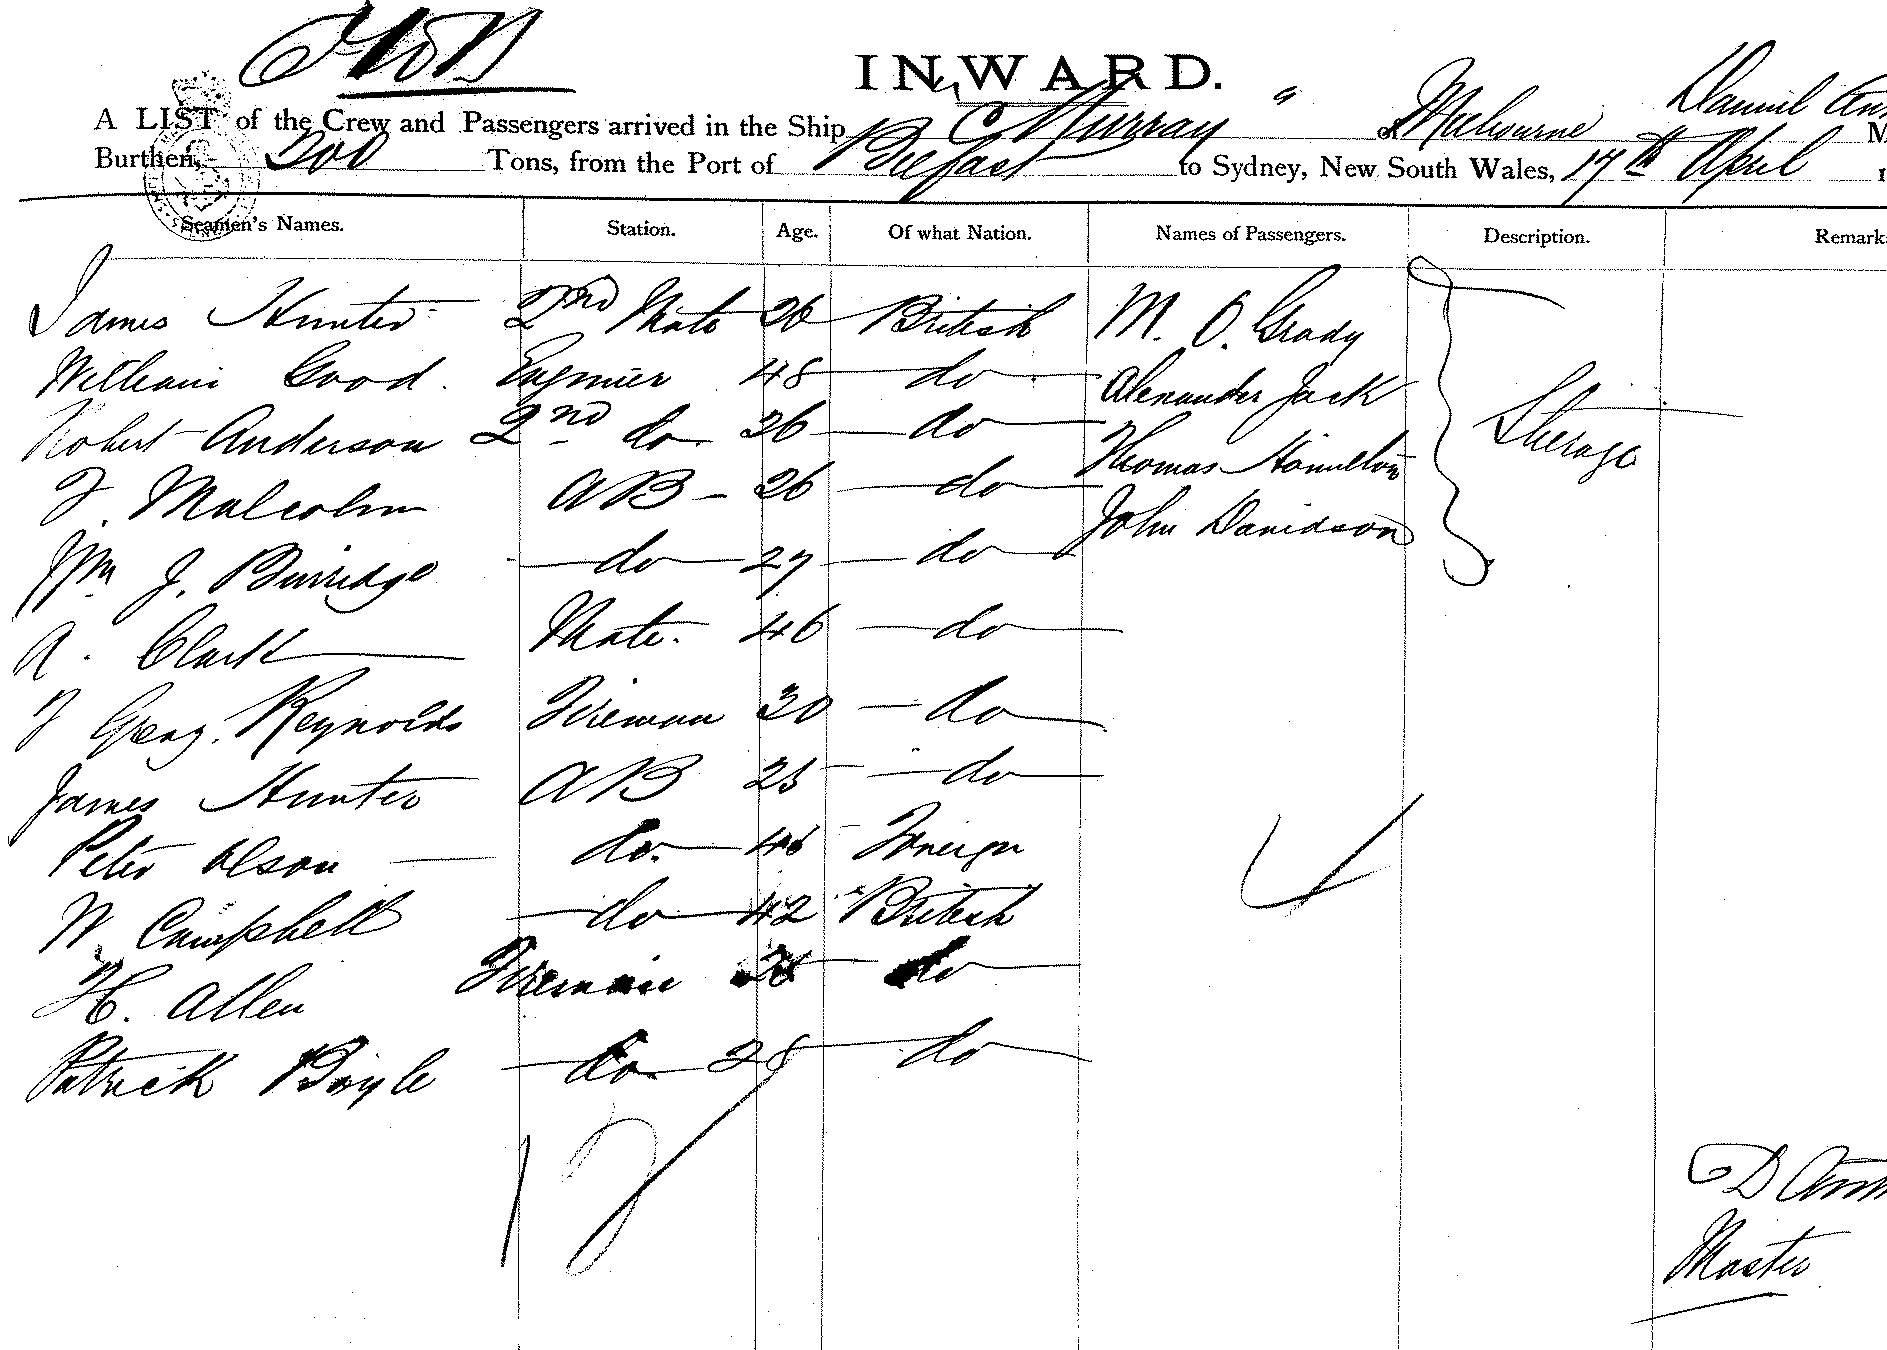 INWARD.
A LIST of the Crew and Passengers arrived in the Ship C Murray " of Melbourne Daniel
Burthen, 300 Tons, from the Port of Belfast to Sydney, New South Wales, 17th April
Seamen's Names. Station. Age. Of what Nation. Names of Passengers. Description. Remark
James Hunter 2nd Mate 26 British M. O. Grady
William Good. Engineer 48 do Alexander Jack
Robert Anderson 2nd do 26 do Thomas Hamilton Steerage
Malcolm AB 26 do John Davidson
Wm J. Burridge do 27 do
A. Clark Mate. 46 do
Reynolds Fireman 30 do
James Hunter AB 25 do
Peter Olson do. 46 Foreign
W Campbell do 42 British
H. Allen Fireman do
Patrick Boyle do 28 do
12
D
Master